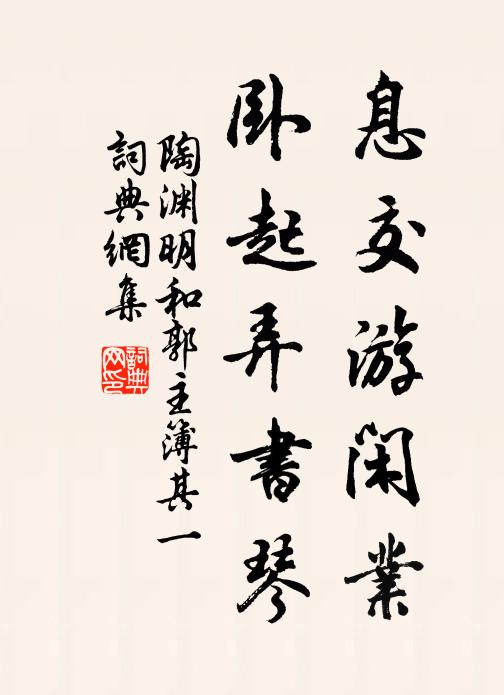 息交游闲業
卧起弄書琴
陶渊明和郭主簿其一
詞典網集
詞典網印